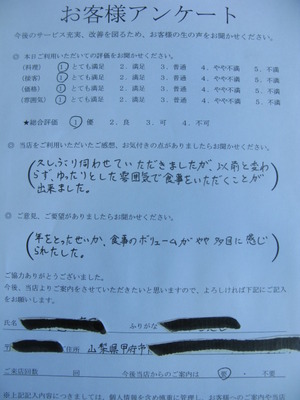 お客様アンケート
今後のサービス充実、改善を図るため、お客様の生の声をお聞かせください。
◎ 本日ご利用いただいての評価をお聞かせください。
(料理) ①とても満足 2. 満足 3. 普通 4. やや不満 5. 不満
(接客) ①とても満足 2. 満足 3. 普通 4. やや不満 5. 不満
(価格) ①とても満足 2. 満足 3. 普通 4. やや不満 5. 不満
(雰囲気) ①とても満足 2. 満足 3. 普通 4. やや不満 5. 不満
★総合評価 ① 優 2. 良 3. 可 4. 不可
◎ 当店をご利用いただいたご感想、お気付きの点がありましたらお聞かせください。
久しぶり伺わせていただきましたが、以前と変わ
らず、ゆったりとした雰囲気で食事をいただくことが
出来ました。
◎ ご意見、ご要望がありましたらお聞かせください。
年をとったせいか、食事のボリュームがやや多目に感じ
られたした。
ご協力ありがとうございました。
今後、当店よりご案内をさせていただきたいと思いますので、よろしければ下記にご記入
をお願いします。
氏名 ふりがな
住所 山梨県甲府市
ご来店回数 回 今後当店からのご案内は 要・不要
※ご記入内容につきましては、個人情報を含め厳重に管理し、お客様へのご案内や当店